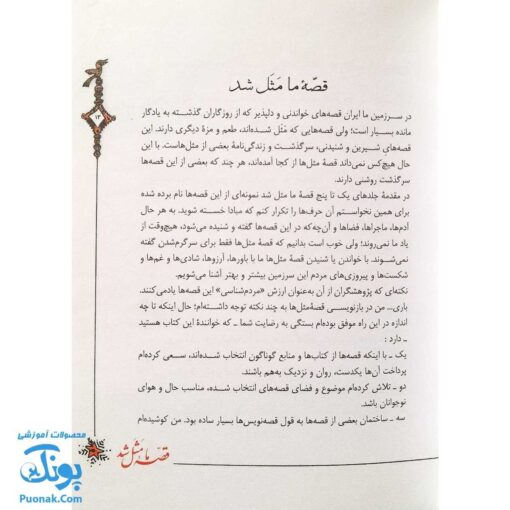 قصّهٔ ما مَثَل شد
۱۳
در سرزمین ما ایران قصه‌های خواندنی و دلپذیر که از روزگاران گذشته به یادگار
مانده بسیار است؛ ولی قصه‌هایی که مَثَل شده‌اند، طعم و مزهٔ دیگری دارند. این
قصه‌های شیرین و شنیدنی، سرگذشت و زندگی‌نامهٔ بعضی از مثل‌هاست. با این
حال هیچ‌کس نمی‌داند قصهٔ مثل‌ها از کجا آمده‌اند، هر چند که بعضی از این قصه‌ها
سرگذشت روشنی دارند.
در مقدمهٔ جلدهای یک تا پنج قصهٔ ما مثل شد نمونه‌ای از این قصه‌ها نام برده شده
برای همین نخواستم آن حرف‌ها را تکرار کنم که مبادا خسته شوید. به هر حال
آدم‌ها، ماجراها، فضاها و آن‌چه‌که در این قصه‌ها گفته و شنیده می‌شود، هیچ‌وقت از
یاد ما نمی‌روند؛ ولی خوب است بدانیم که قصهٔ مثل‌ها فقط برای سرگرم‌شدن گفته
نمی‌شوند. با خواندن یا شنیدن قصهٔ مثل‌ها ما با باورها، آرزوها، شادی‌ها و غم‌ها و
شکست‌ها و پیروزی‌های مردم این سرزمین بیشتر و بهتر آشنا می‌شویم.
نکته‌ای که پژوهشگران از آن به‌عنوان ارزش "مردم‌شناسی" این قصه‌ها یادمی‌کنند.
باری... من در بازنویسی قصهٔ‌مثل‌ها به چند نکته توجه داشته‌ام؛ حال اینکه تا چه
اندازه در این راه موفق بوده‌ام بستگی به رضایت شما ـ که خوانندهٔ این کتاب هستید
ـ دارد:
یک ـ با اینکه قصه‌ها از کتاب‌ها و منابع گوناگون انتخاب شده‌اند، سعی کرده‌ام
پرداخت آن‌ها یکدست، روان و نزدیک به‌هم باشند.
دو ـ تلاش کرده‌ام موضوع و فضای قصه‌های انتخاب شده، مناسب حال و هوای
نوجوانان باشد.
سه ـ ساختمان بعضی از قصه‌ها به قول قصه‌نویس‌ها بسیار ساده بود. من کوشیده‌ام
قصهٔ ما مَثَل شد
محصولات آموزشی
پونک
Puonak.Com